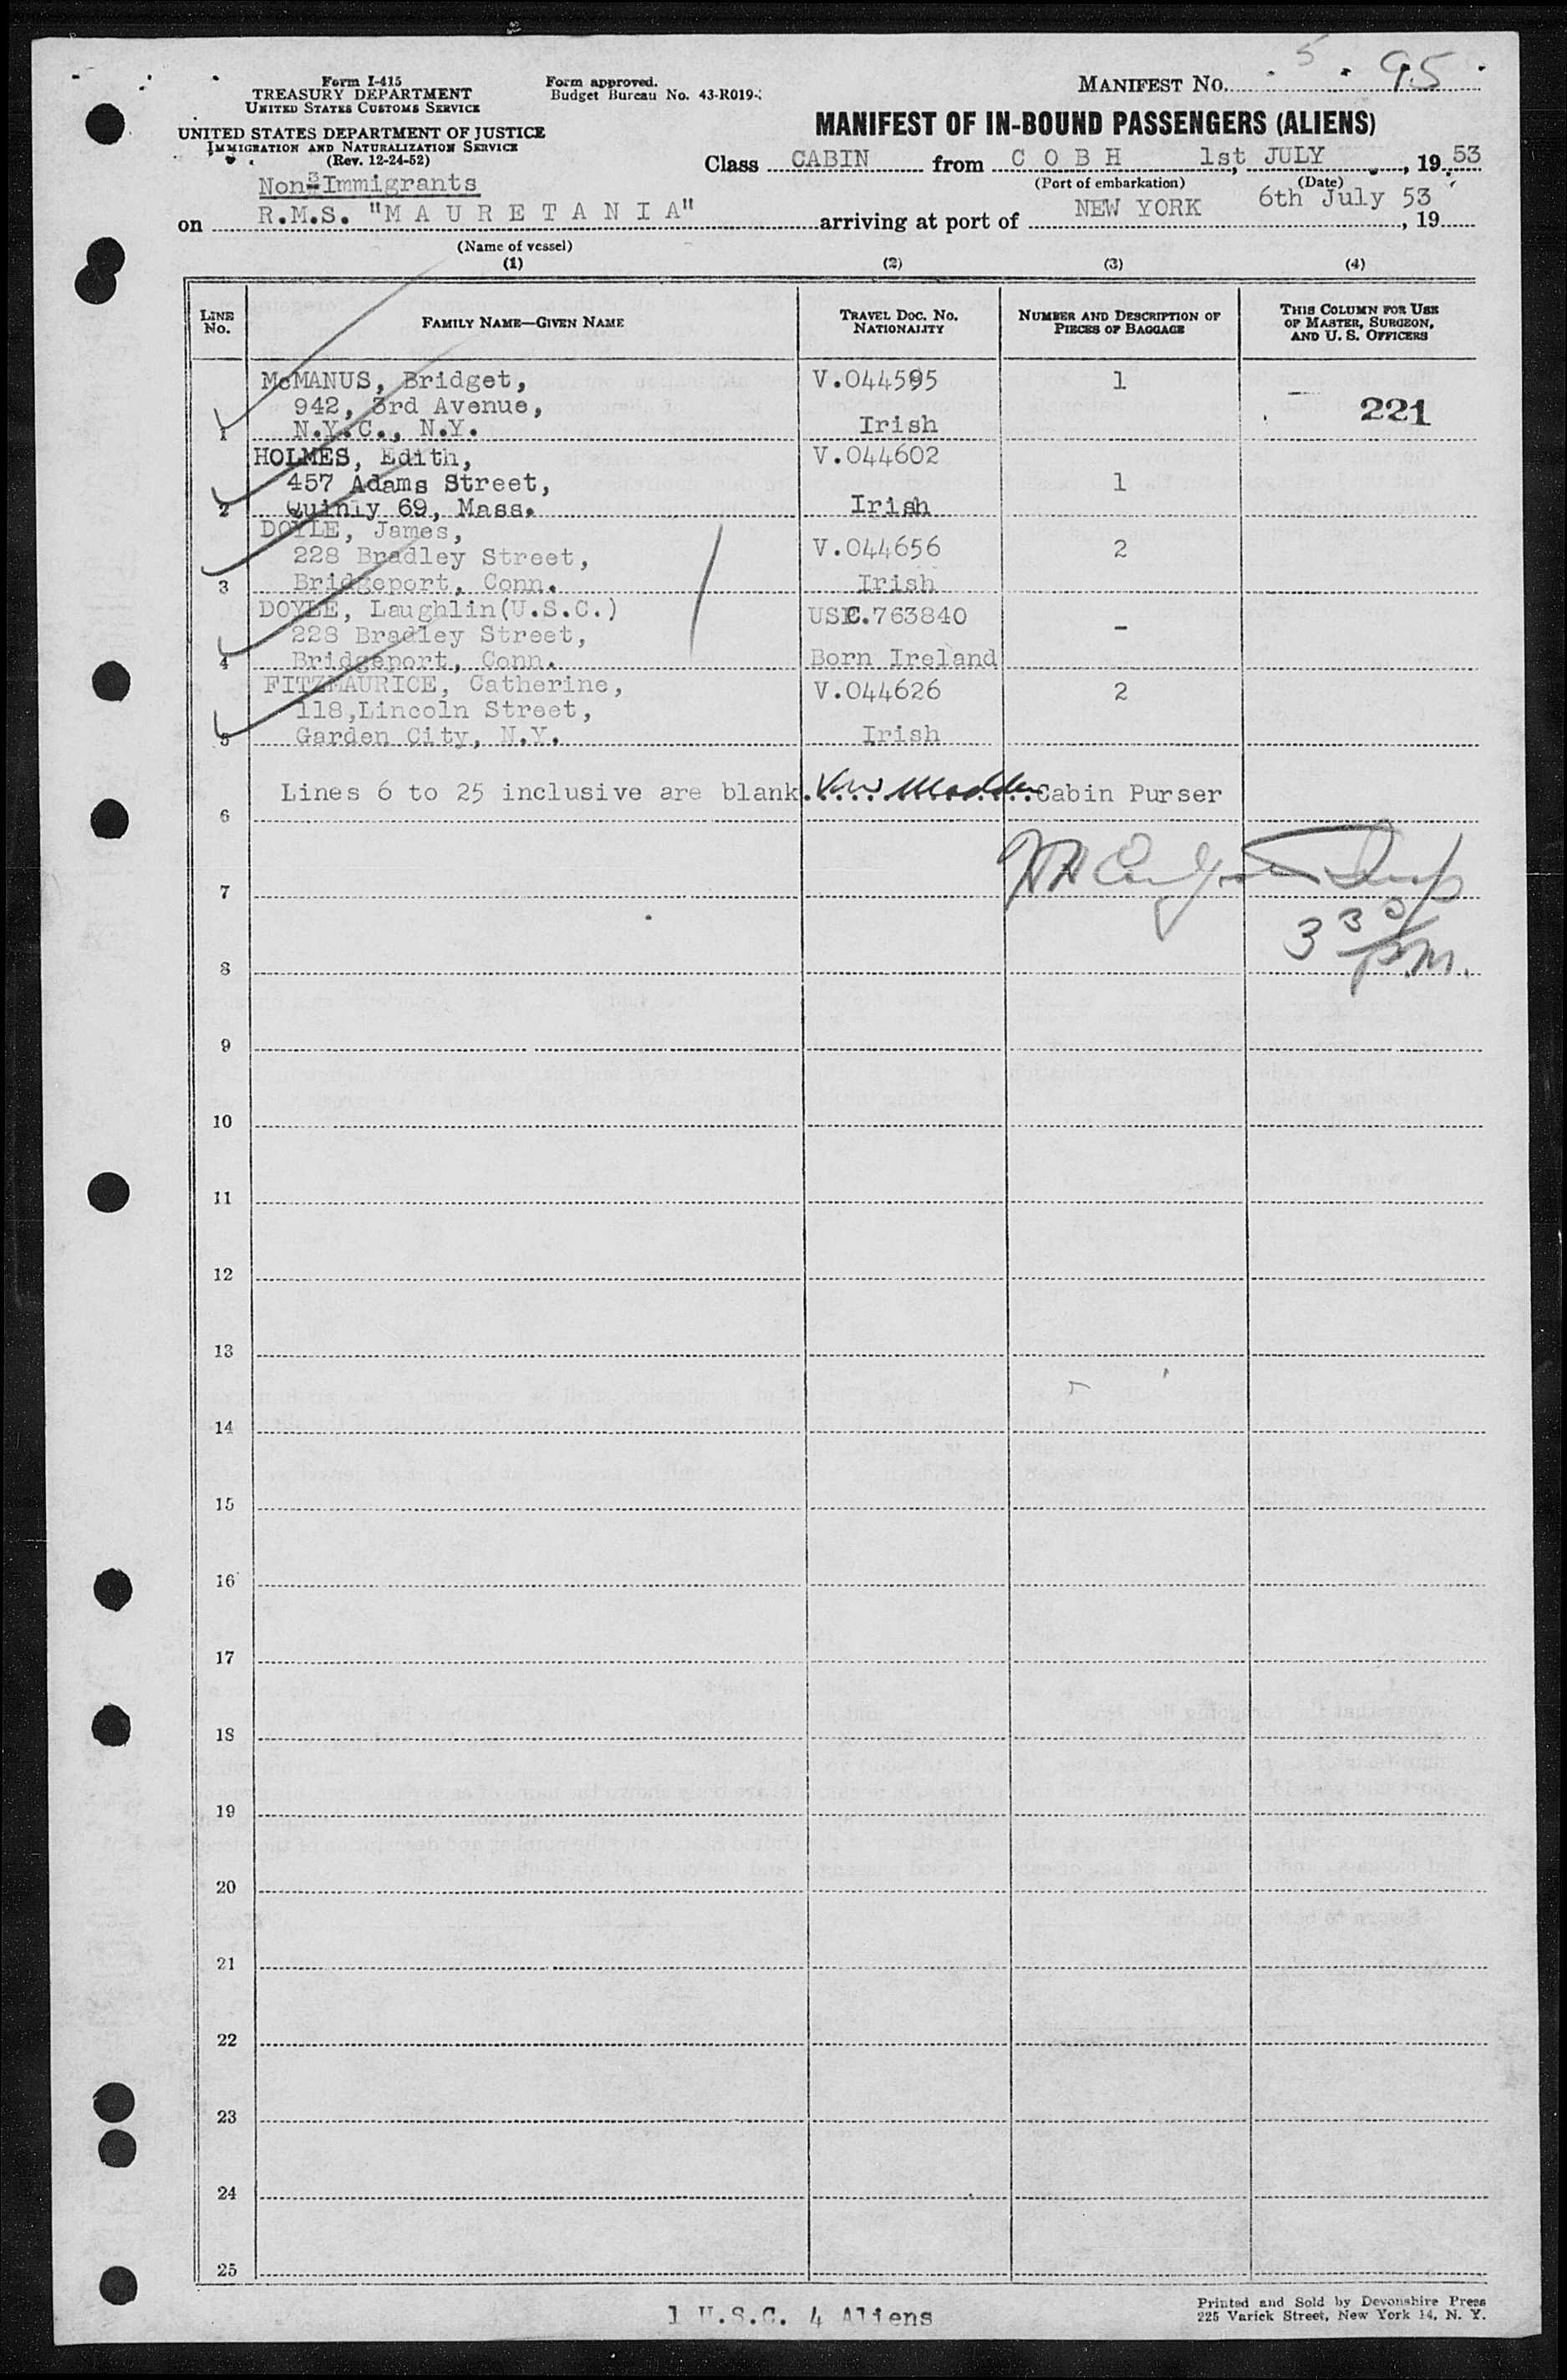 Form I-415
TREASURY DEPARTMENT
UNITED STATES CUSTOMS SERVICE
UNITED STATES DEPARTMENT OF JUSTICE
IMMIGRATION AND NATURALIZATION SERVICE
(Rev. 12-24-52)
Form approved.
Budget Bureau No. 43-R019-
MANIFEST No. 5 95
MANIFEST OF IN-BOUND PASSENGERS (ALIENS)
Class CABIN from C O B H 1st JULY, 19 53
(Port of embarkation) (Date)
Non-Immigrants
on R.M.S. "M A U R E T A N I A" arriving at port of NEW YORK 6th July 53, 19
(Name of vessel)
(1) (2) (3) (4)
LINE No. FAMILY NAME—GIVEN NAME TRAVEL DOC. NO. NATIONALITY NUMBER AND DESCRIPTION OF PIECES OF BAGGAGE THIS COLUMN FOR USE OF MASTER, SURGEON, AND U. S. OFFICERS
McMANUS, Bridget, V.044595 1
942, 3rd Avenue, 221
1 N.Y.C., N.Y. Irish
HOLMES, Edith, V.044602
457 Adams Street, 1
2 Quinly 69, Mass. Irish
DOYLE, James,
228 Bradley Street, V.044656 2
3 Bridgeport, Conn. Irish
DOYLE, Laughlin(U.S.C.) USC.763840
228 Bradley Street, -
4 Bridgeport, Conn. Born Ireland
FITZMAURICE, Catherine, V.044626 2
118,Lincoln Street,
5 Garden City, N.Y. Irish
Lines 6 to 25 inclusive are blank. Cabin Purser
6
7
8 3 30 p.m.
9
10
11
12
13
14
15
16
17
18
19
20
21
22
23
24
25
1 U.S.C. 4 Aliens
Printed and Sold by Devonshire Press
225 Varick Street, New York 14, N. Y.